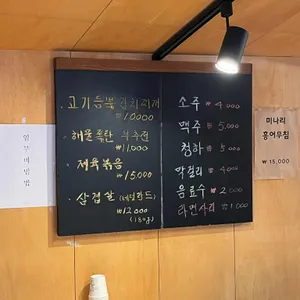 · 고기듬뿍 김치찌개
₩10000
· 해물폭탄 부추전
· 제육볶음
₩15,000
· 삼겹살
₩12,000
(180g)
소주 ₩4,000
맥주 ₩5,000
청하 ₩5,000
막걸리 ₩4000
음료수 ₩2,000
라면사리 ₩1,000
미나리
홍어무침
₩15,000